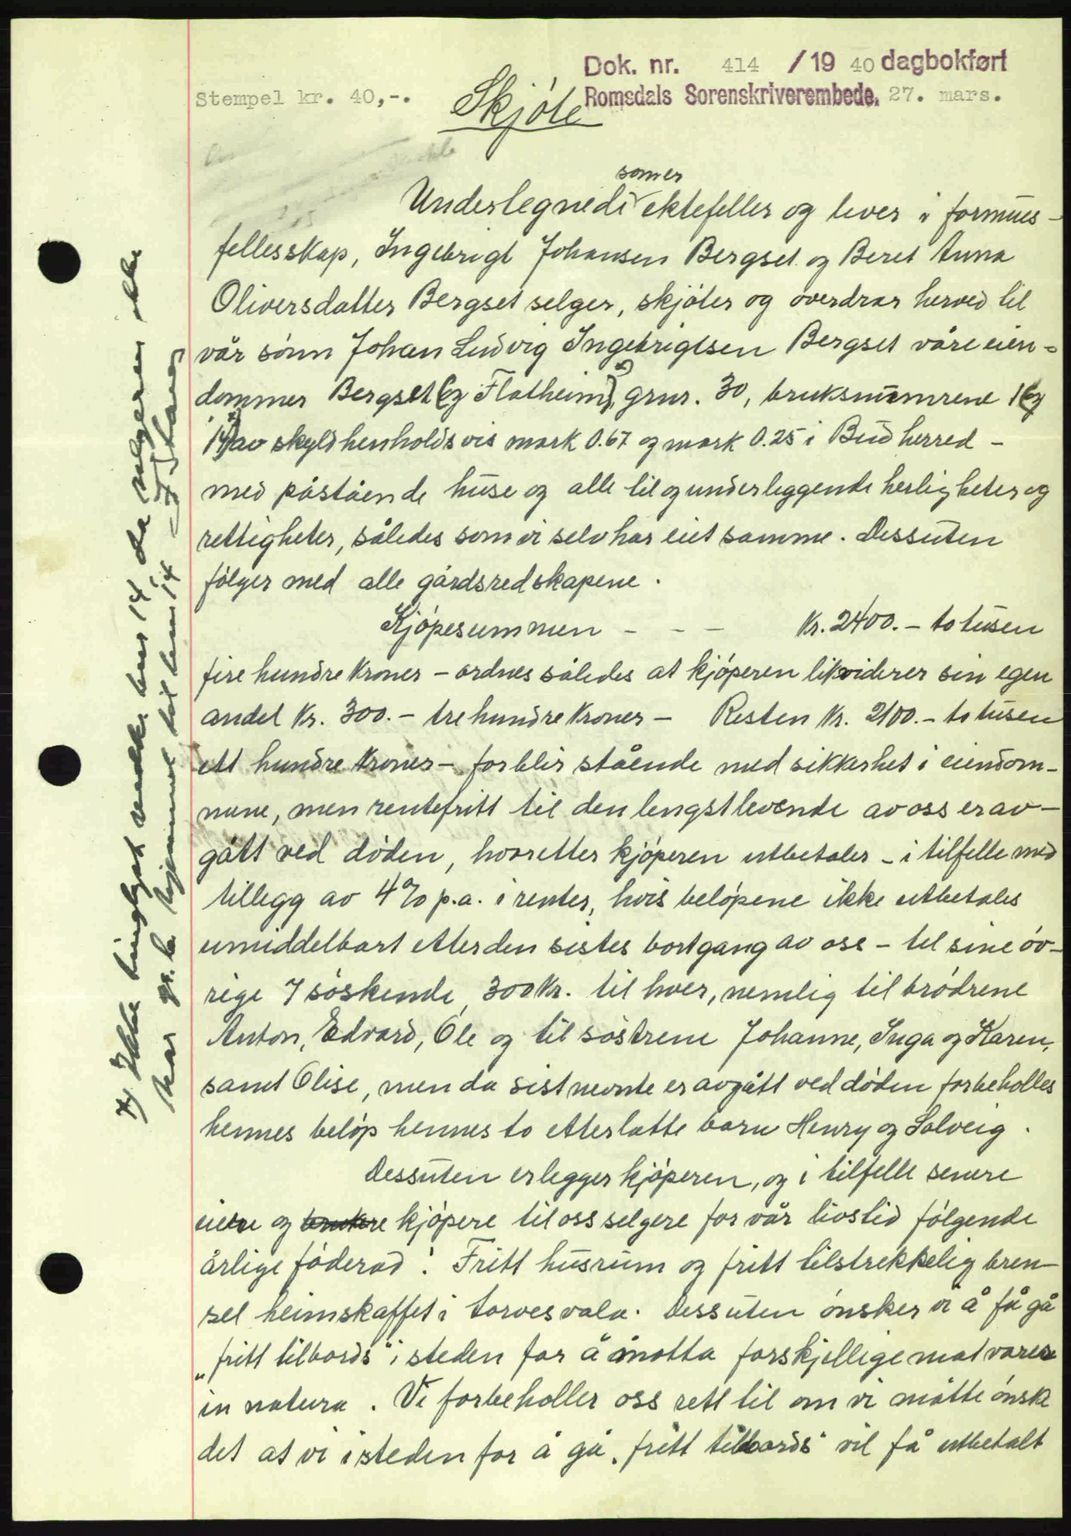 Dok. nr. 414 / 19 40 dagbokført
Stempel kr. 40,-. Romsdals Sorenskriverembede. 27. mars.
Skjöte
som er
Undertegnede ektefeller og lever i formues-
fellesskap, Ingebrigt Johansen Bergset og Beret Anna
Oliversdatter Bergset selger, skjöter og overdrar herved til
vår sönn Johan Ludvig Ingebrigtsen Bergset våre eien-
dommer Bergset (og Flatheim), grnr. 30, bruksnumrene 1 (og
14) av skyld henholdsvis mark 0.67 og mark 0.25 i Bud herred -
med påstående huse og alle til og underliggende herligheter og
rettigheter, således som vi selv har eiet samme. Dessuten
fölger med alle gårdsredskapene.
Kjöpesummen - - - kr. 2400.- to tusen
fire hundre kroner - ordnes således at kjöperen likviderer sin egen
andel kr. 300.- tre hundre kroner - Resten kr. 2100.- to tusen
ett hundre kroner - forblir stående med sikkerhet i eiendom-
mene, men rentefritt til den lengstlevende av oss er av-
gått ved döden, hvoretter kjöperen utbetaler - i tilfelle med
tillegg av 4% p.a. i renter, hvis belöpene ikke utbetales
umiddelbart etter den sistes bortgang av oss - til sine öv-
rige 7 söskende, 300 kr. til hver, nemlig til brödrene
Anton, Edvard, Ole og til söstrene Johanne, Inga og Karen,
samt Olise, men da sistnevnte er avgått ved döden forbeholles
hennes belöp hennes to etterlatte barn Henry og Solveig.
Dessuten erlegger kjöperen, og i tilfelle senere
eiere og brukere kjöpere til oss selgere for vår livstid fölgende
årlige föderåd: Fritt husrum og fritt tilstrekkelig bren-
sel heimskaffet i torvesvala. Dessuten önsker vi å få gå
"fritt tilbords" i steden for å motta forskjellige matvarer
in natura. Vi forbeholler oss rett til om vi måtte önske
det at vi i steden for å gå "fritt tilbords" vil få utbetalt
x) Ikke tinglyst vedk. bnr 14, da selgeren ikke
har gr.b. hjemmel til bnr. 14